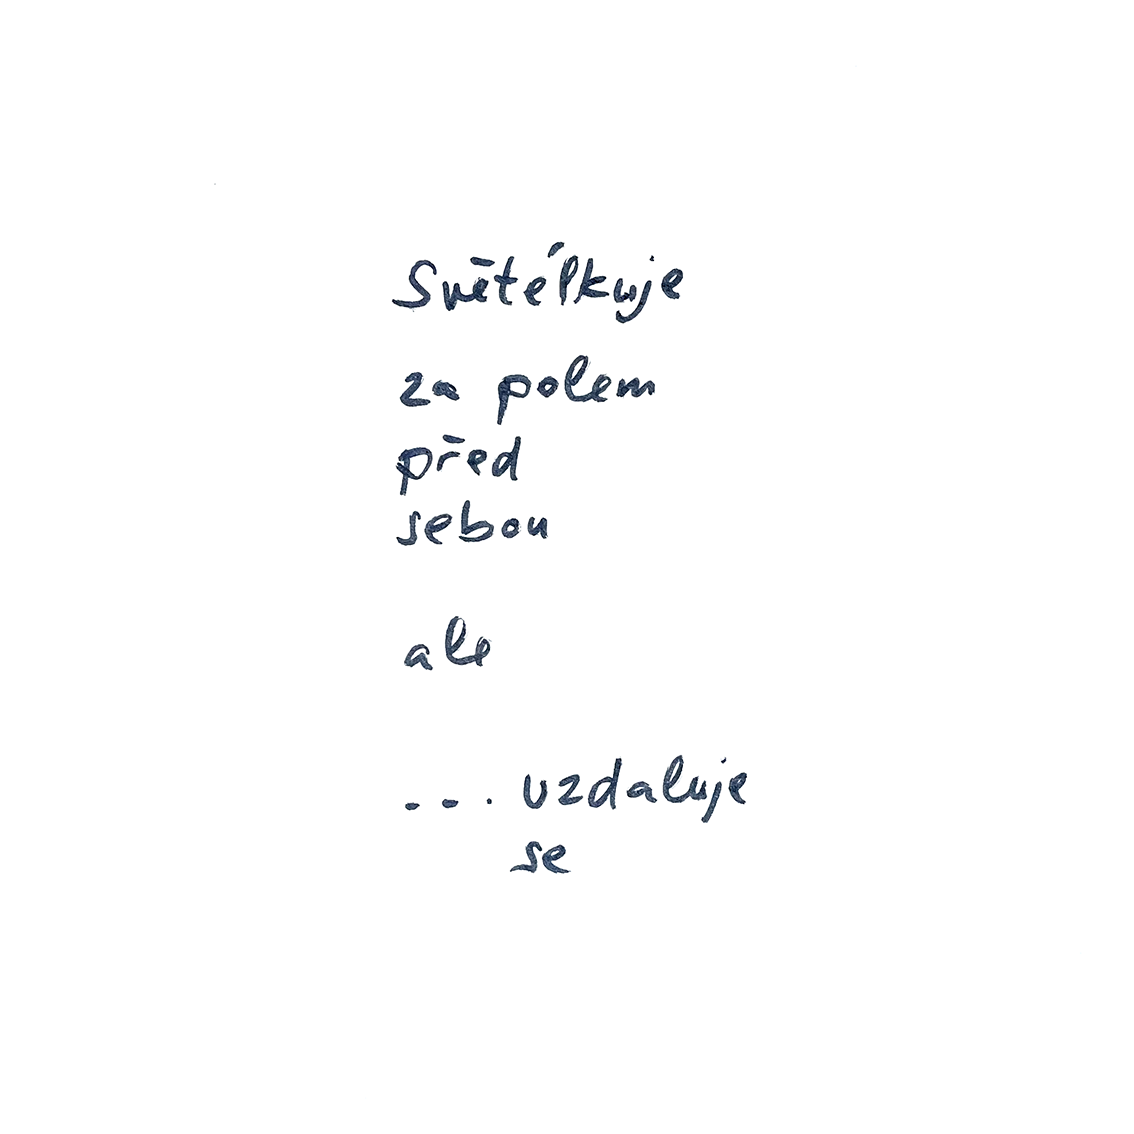 Světélkuje
za polem
před
sebou
ale
... vzdaluje
se